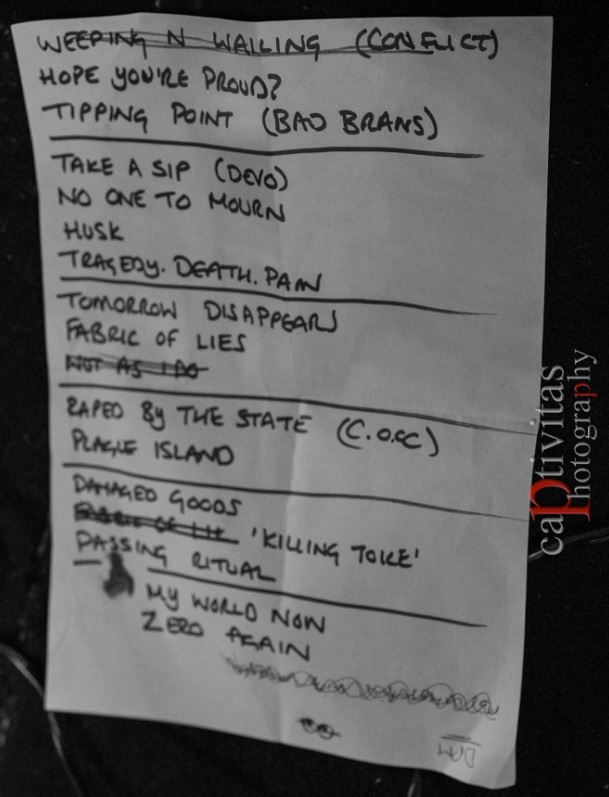 WEEPING N WAILING (CONFLICT)
HOPE YOU'RE PROUD?
TIPPING POINT (BAD BRANS)
TAKE A SIP (DEVO)
NO ONE TO MOURN
HUSK
TRAGEDY. DEATH. PAIN
TOMORROW DISAPPEARS
FABRIC OF LIES
NOT AS I DO
RAPED BY THE STATE (C.O.C)
PLAGUE ISLAND
DAMAGED GOODS
FABRIC OF LIE 'KILLING TOKE'
PASSING RITUAL
MY WORLD NOW
ZERO AGAIN
captivitas
photography